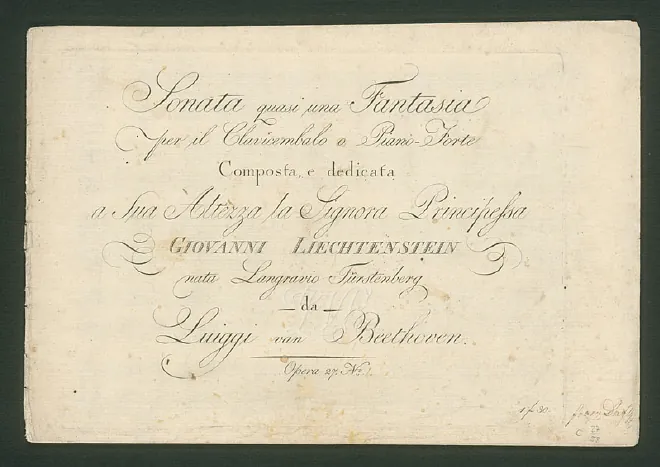 Sonata quasi una Fantasia
per il Clavicembalo o Piano-Forte
Composta, e dedicata
a Sua Altezza la Signora Principessa
GIOVANNI LIECHTENSTEIN
nata Langravio Fürstenberg
— da —
Luiggi van Beethoven.
Opera 27. No
1f 30